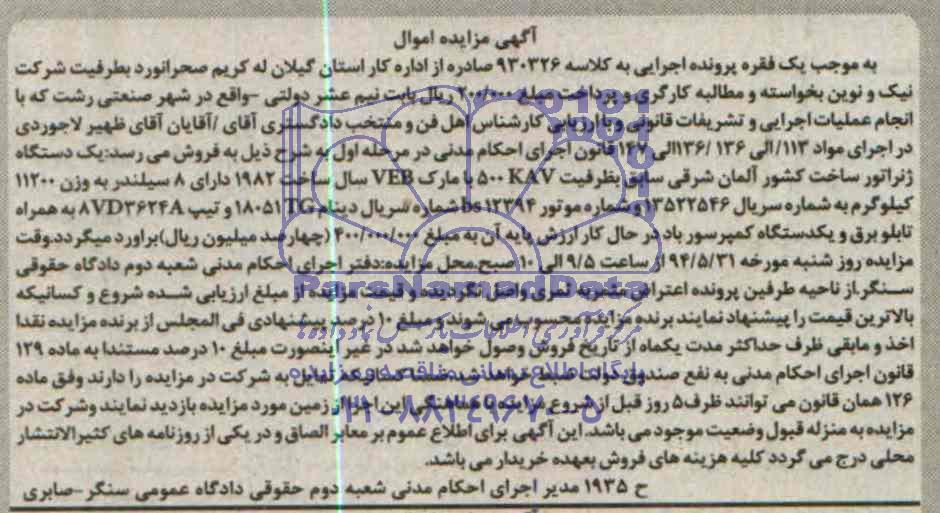 آگهی مزایده اموال
به موجب یک فقره پرونده اجرایی به کلاسه ۹۳۰۳۲۶ صادره از اداره کار استان گیلان له کریم صحرانورد بطرفیت شرکت
نیک و نوین بخواسته و مطالبه کارگری و پرداخت مبلغ ۲۰۰/۰۰۰ ریال بابت نیم عشر دولتی -واقع در شهر صنعتی رشت که با
انجام عملیات اجرایی و تشریفات قانونی و با ارزیابی کارشناس اهل فن و منتخب دادگستری آقای /آقایان آقای ظهیر لاجوردی
در اجرای مواد ۱۱۳/ الی ۱۳۶ /۱۳۶الی ۱۴۷ قانون اجرای احکام مدنی در مرحله اول به شرح ذیل به فروش می رسد:یک دستگاه
ژنراتور ساخت کشور آلمان شرقی سابق بظرفیت ۵۰۰ KAV با مارک VEB سال ساخت ۱۹۸۲ دارای ۸ سیلندر به وزن ۱۱۲۰۰
کیلوگرم به شماره سریال ۱۳۵۲۲۵۴۶ و شماره موتور bs۱۲۳۹۴ شماره سریال دینام ۱۸۰۵۱TG و تیپ ۸VD۳۶۲۴A به همراه
تابلو برق و یکدستگاه کمپرسور باد در حال کار ارزش پایه آن به مبلغ ۴۰۰/۰۰۰/۰۰۰ (چهارصد میلیون ریال)براورد میگردد.وقت
مزایده روز شنبه مورخه ۹۴/۵/۳۱ از ساعت ۹/۵ الی ۱۰ صبح.محل مزایده:دفتر اجرای احکام مدنی شعبه دوم دادگاه حقوقی
سنگر.از ناحیه طرفین پرونده اعتراض مثمر به ثمری واصل نگردیده و قیمت مزایده از مبلغ ارزیابی شده شروع و کسانیکه
بالاترین قیمت را پیشنهاد نمایند برنده مزایده محسوب می شوند و مبلغ ۱۰ درصد پیشنهادی فی المجلس از برنده مزایده نقدا
اخذ و مابقی ظرف حداکثر مدت یکماه از تاریخ فروش وصول خواهد شد در غیر اینصورت مبلغ ۱۰ درصد مستندا به ماده ۱۲۹
قانون اجرای احکام مدنی به نفع صندوق دولت ضبط خواهد شد ضمنا کسانیکه تمایل به شرکت در مزایده را دارند وفق ماده
۱۲۶ همان قانون می توانند ظرف۵ روز قبل از شروع این اجرا از زمین مورد مزایده بازدید نمایند وشرکت در
مزایده به منزله قبول وضعیت موجود می باشد. این آگهی برای اطلاع عموم بر معابر الصاق و در یکی از روزنامه های کثیرالانتشار
محلی درج می گردد کلیه هزینه های فروش بعهده خریدار می باشد.
ح ۱۹۳۵ مدیر اجرای احکام مدنی شعبه دوم حقوقی دادگاه عمومی سنگر-صابری
ParsNamadData
مرکز فرآوری اطلاعات پارس نماد داده ها
پایگاه اطلاع رسانی مناقصه و مزایده
۰۲۱-۸۸۳۴۹۶۷۰-۵